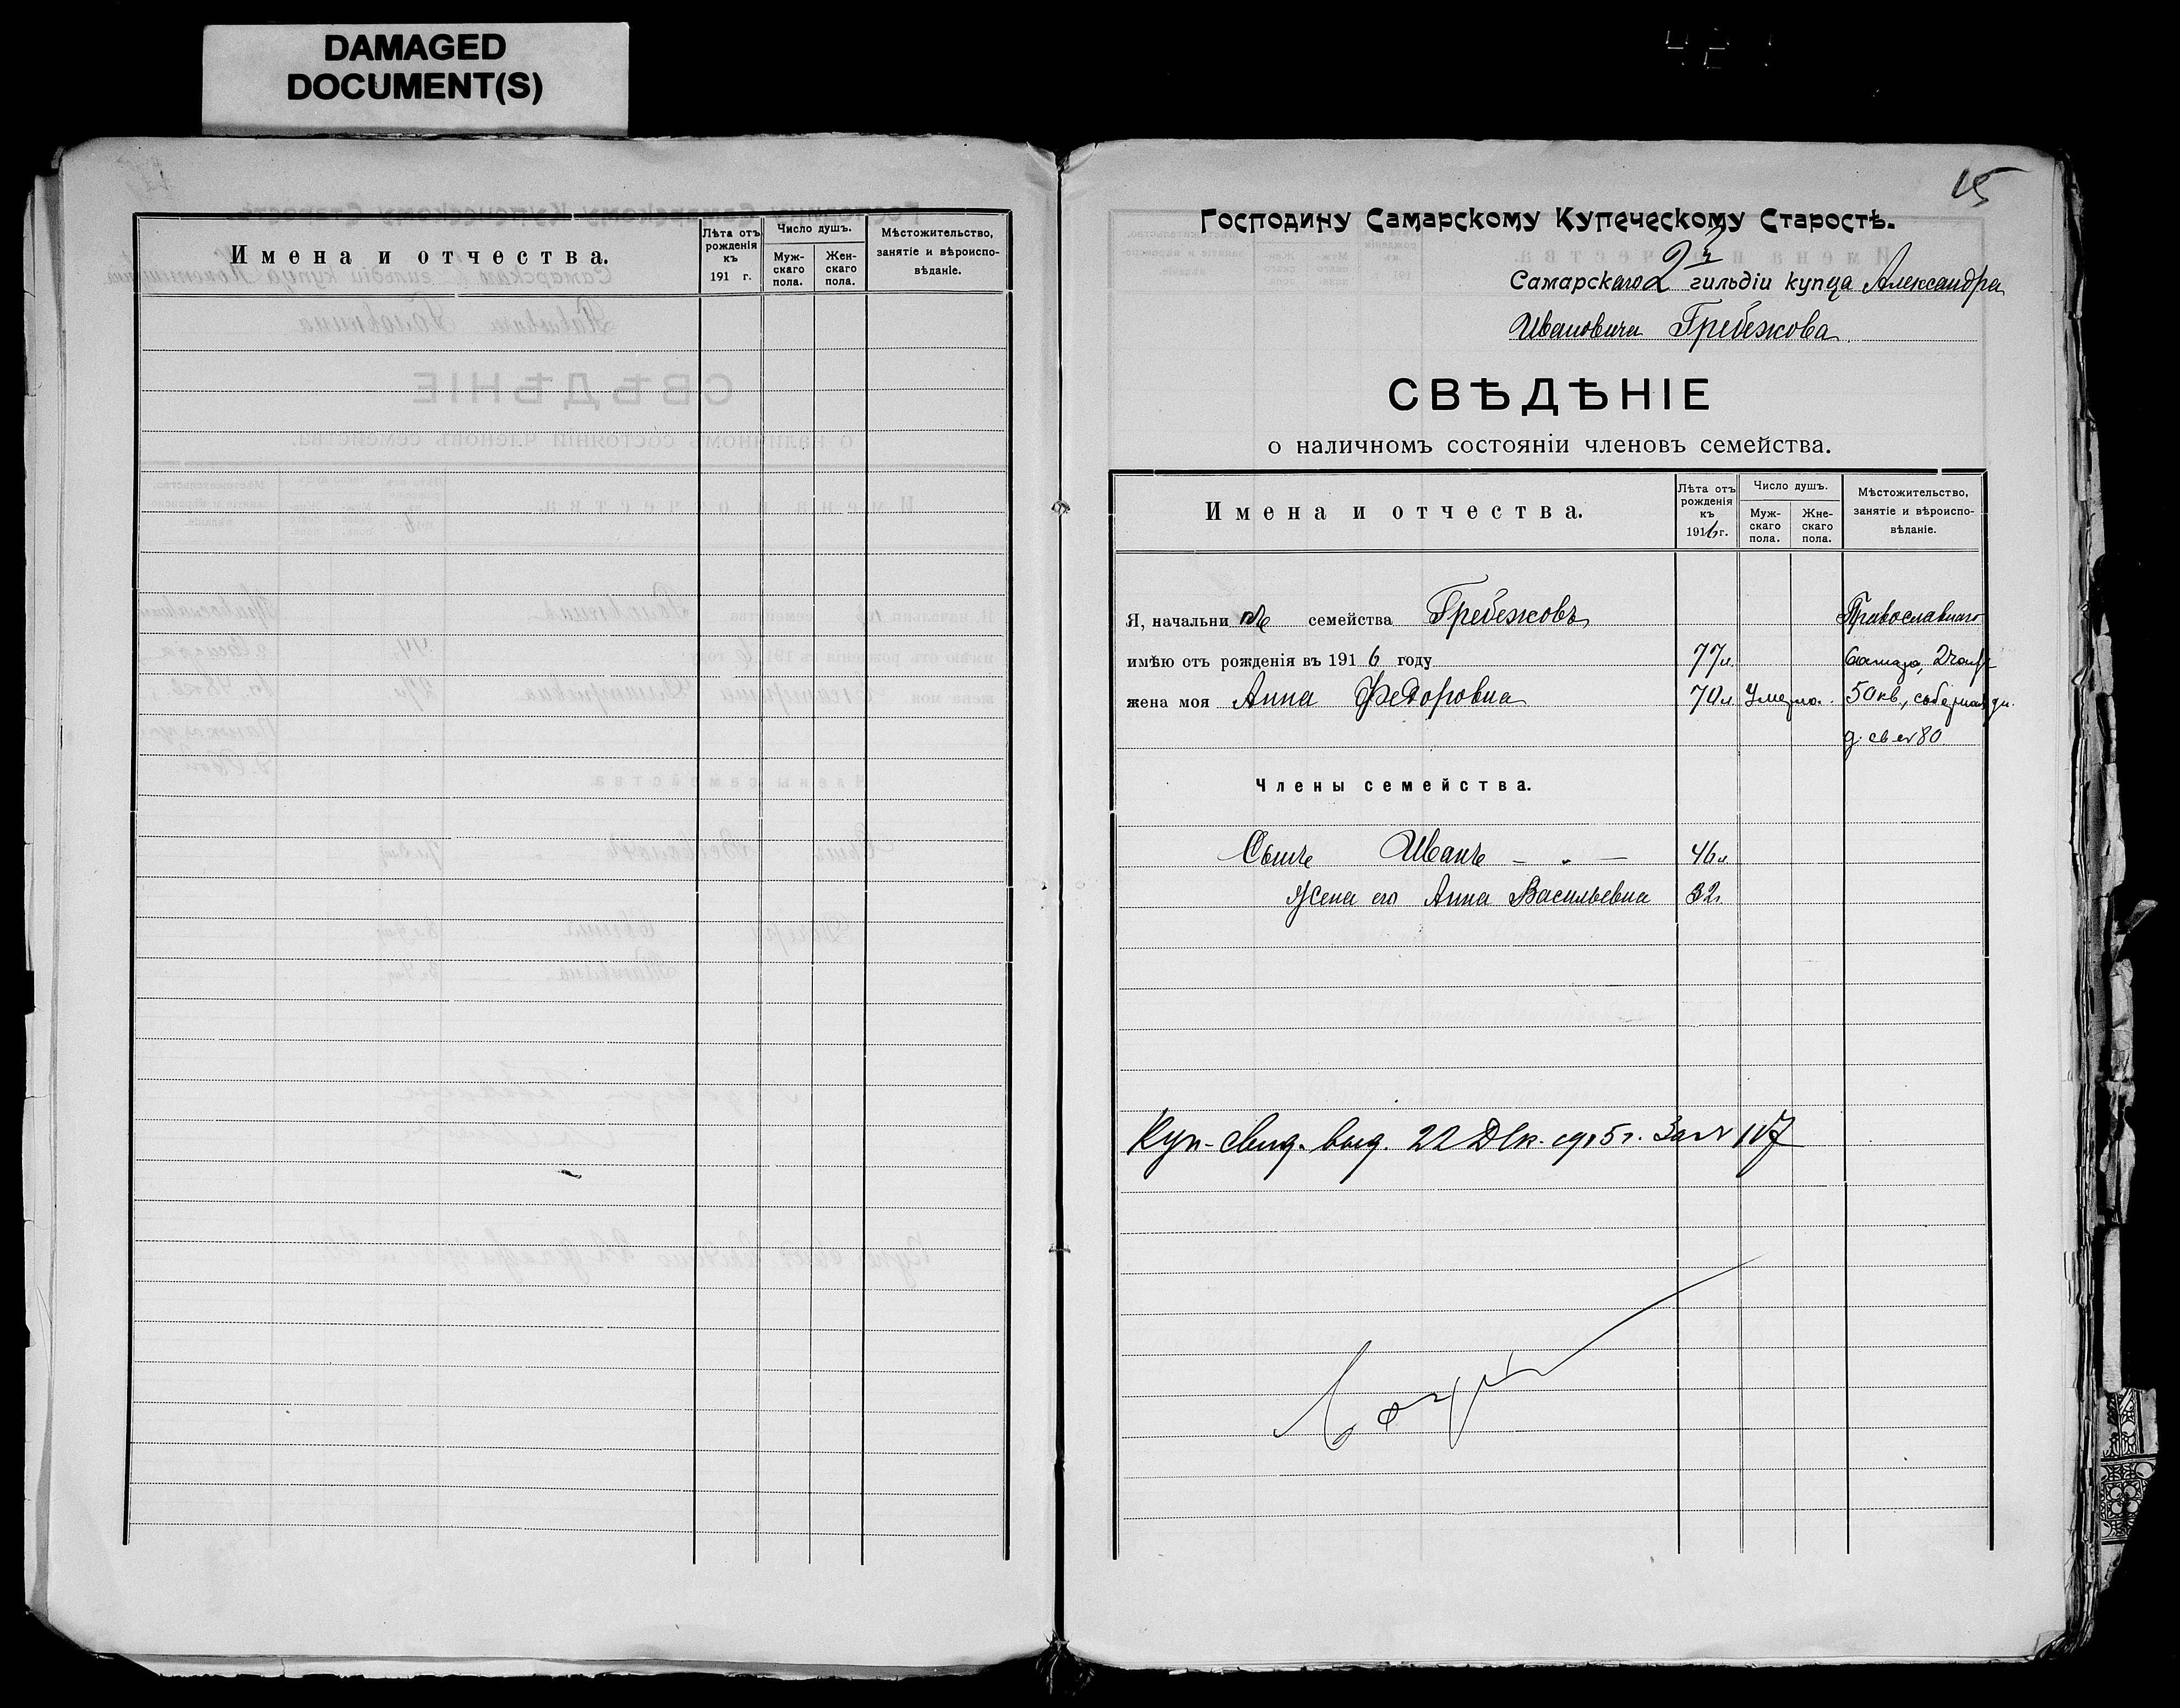 DAMAGED
DOCUMENT(S)
Имена и отчества.
Лѣта отъ рожденія къ 191 г.
Число душъ.
Муж-скаго пола.
Жен-скаго пола.
Мѣстожительство, занятіе и вѣроиспо-вѣданіе.
15
Господину Самарскому Купеческому Старостѣ.
Самарскаго 2 гильдіи купца Александра
Ивановича Гребежкова
СВѢДѢНІЕ
о наличномъ состояніи членовъ семейства.
Имена и отчества.
Лѣта отъ рожденія къ 1916 г.
Число душъ.
Муж-скаго пола.
Жне-скаго пола.
Мѣстожительство, занятіе и вѣроиспо-вѣданіе.
Я, начальни семейства Гребежковъ Православнаго
имѣю отъ рожденія въ 1916 году 77 л. Самара, 2 части
жена моя Анна Федоровна 70 л. Умерла. 50 кв.,
80
Члены семейства.
Сынъ Иванъ — „ — 46 л.
Жена его Анна Васильевна 32 г.
Куп. свид. выд. 22 Дек. 1915 г. за №